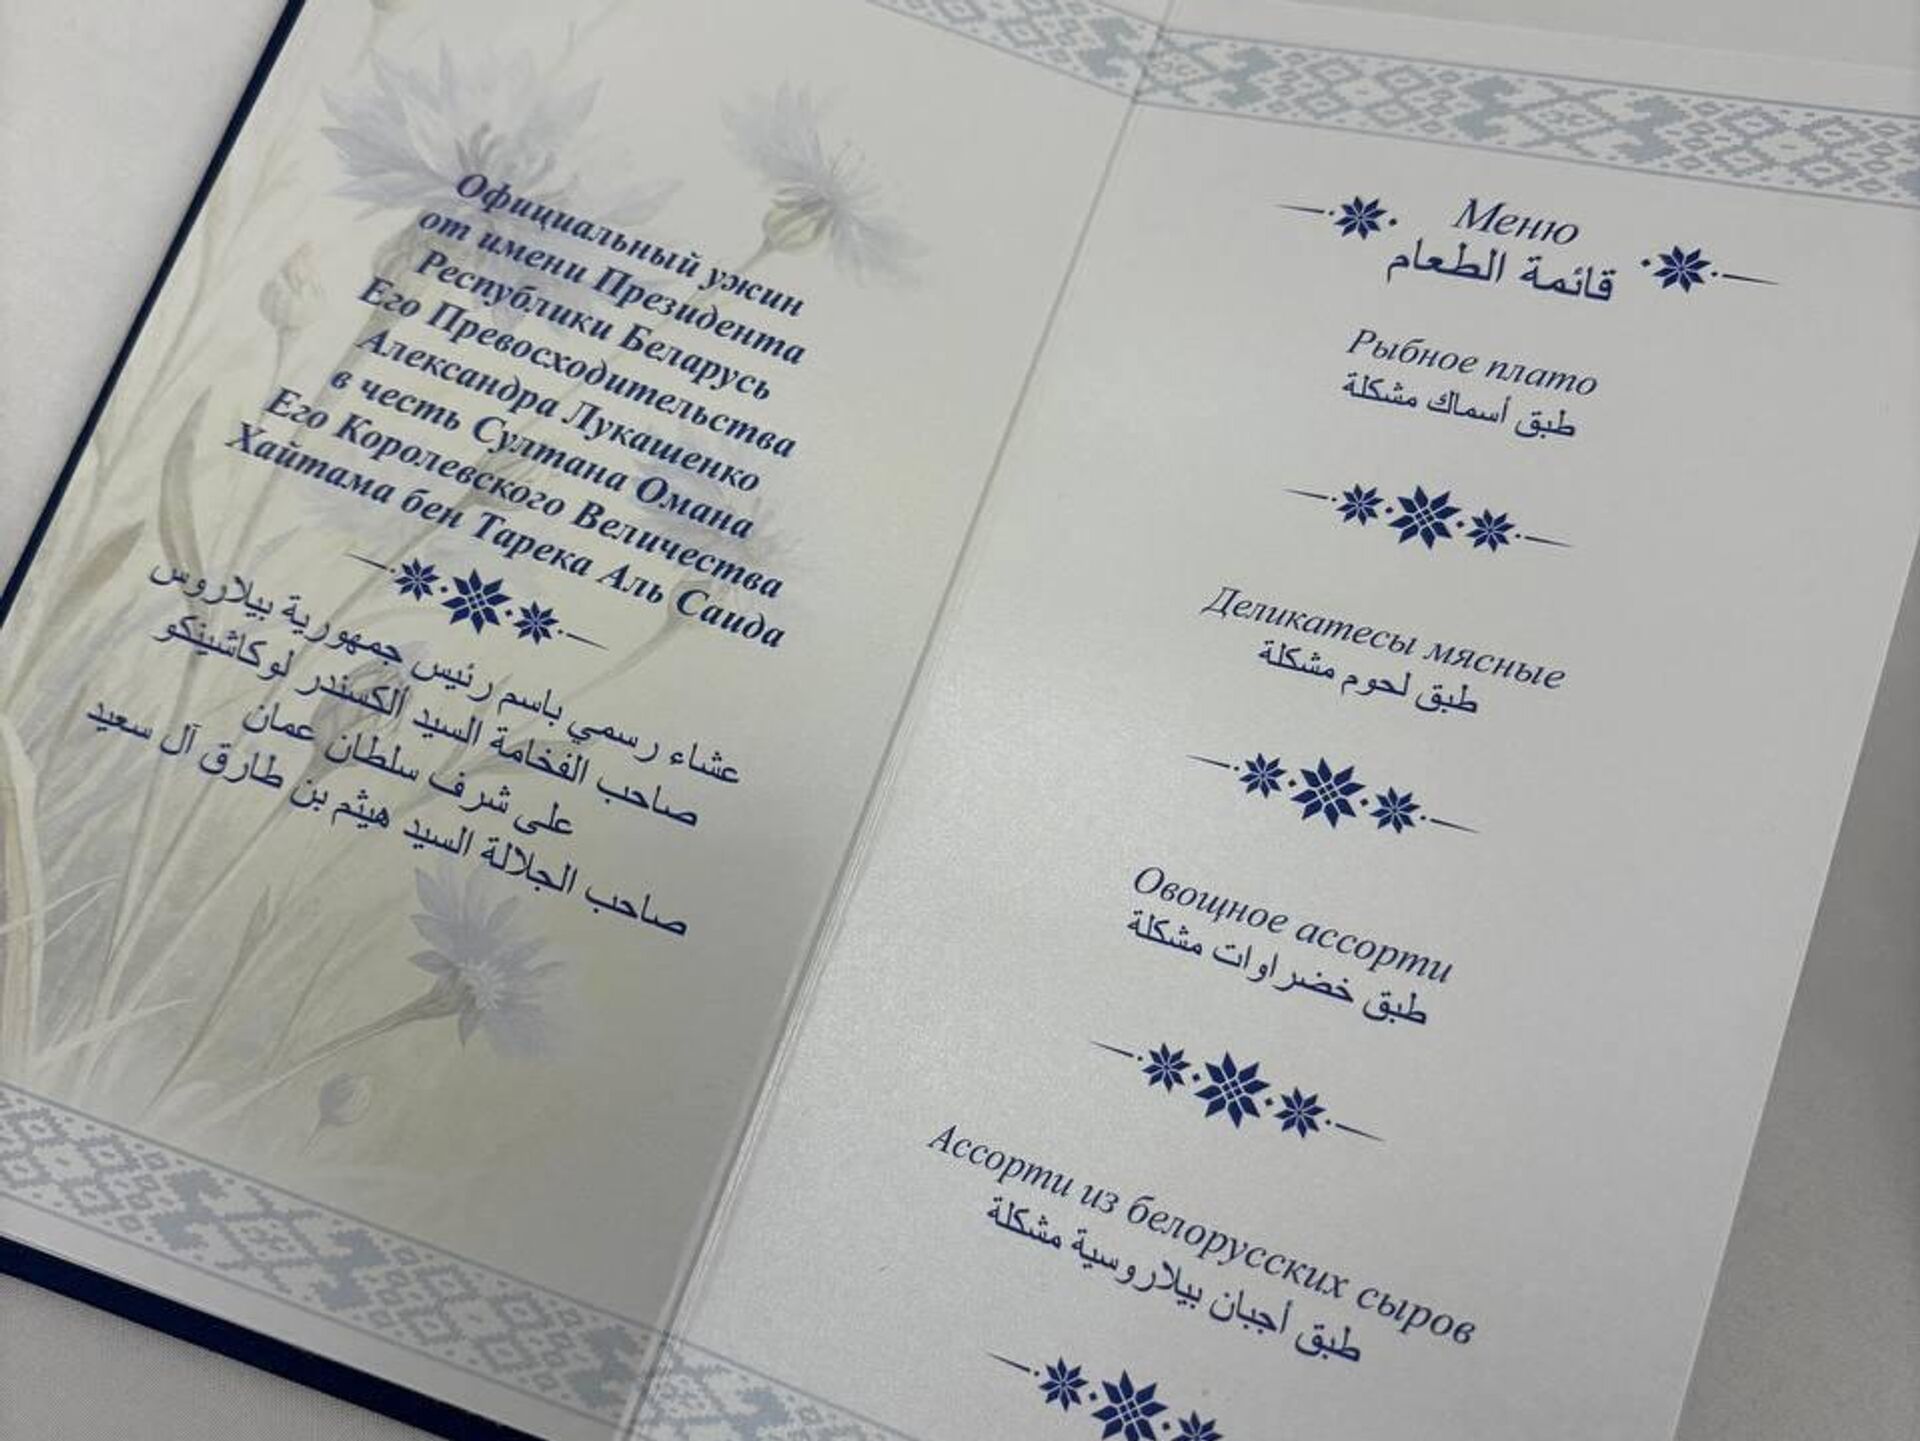 Официальный ужин
от имени Президента
Республики Беларусь
Его Превосходительства
Александра Лукашенко
в честь Султана Омана
Его Королевского Величества
Хайтама бен Тарека Аль Саида
عشاء رسمي باسم رئيس جمهورية بيلاروس
صاحب الفخامة السيد ألكسندر لوكاشينكو
على شرف سلطان عمان
صاحب الجلالة السيد هيثم بن طارق آل سعيد
Меню
قائمة الطعام
Рыбное плато
طبق أسماك مشكلة
Деликатесы мясные
طبق لحوم مشكلة
Овощное ассорти
طبق خضراوات مشكلة
Ассорти из белорусских сыров
طبق أجبان بيلاروسية مشكلة